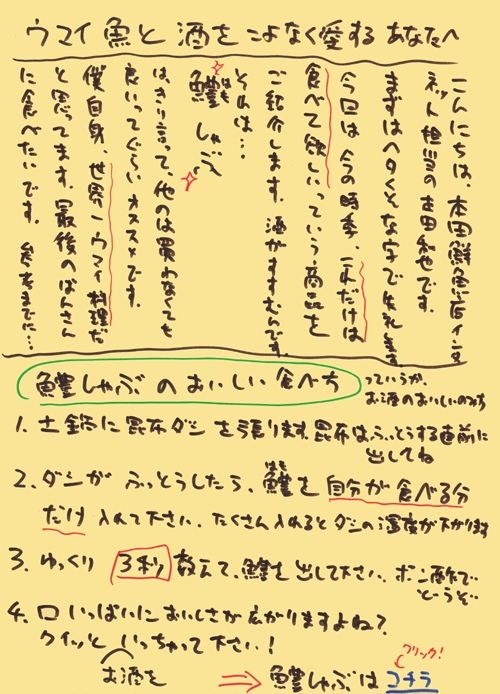 ウマイ魚と酒をこよなく愛するあなたへ
こんにちは、本田鮮魚店インター
ネット担当の本田和也です。
まずはヘタくそな字で失礼します。
今回は今の時季、これだけは
食べて欲しいっていう商品を
ご紹介します。酒がすすむんです。
それは…
鱧しゃぶ
はも
はっきり言って、他のは買わなくても
良いってぐらいオススメです。
僕自身、世界一ウマイ料理だ
と思ってます。最後のばんさん
に食べたいです。参考までに…
鱧しゃぶのおいしい食べ方
っていうか、
お酒のおいしいのみ方
1. 土鍋に昆布ダシを張ります。昆布はふっとうする直前に
出してね
2. ダシがふっとうしたら、鱧を自分が食べる分
はも
だけ入れて下さい。たくさん入れるとダシの温度が下がります
3. ゆっくり3秒数えて、鱧を出して下さい。ポン酢で
どうぞ
4. 口いっぱいにおいしさが広がりますよね?
クイッといっちゃって下さい!
お酒を
クリック!
⇒ 鱧しゃぶはコチラ